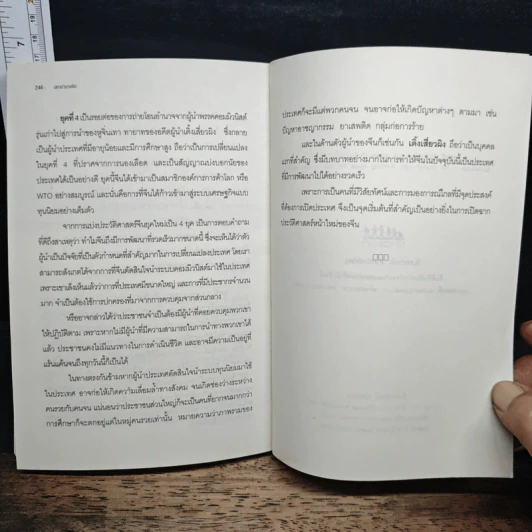 244
ยุคที่ 4 เป็นรอยต่อของการถ่ายโอนอำนาจจากผู้นำพรรคคอมมิวนิสต์
รุ่นเก่าไปสู่การนำของหูจิ่นเทา ทายาทของอดีตผู้นำเติ้งเสี่ยวผิง ซึ่งกลาย
เป็นผู้นำประเทศที่มีอายุน้อยและมีการศึกษาสูง ถือว่าเป็นการเปลี่ยนแปลง
ในยุคที่ 4 ที่ปราศจากการนองเลือด และเป็นสัญญาณบ่งบอกนัยของ
ประเทศได้เป็นอย่างดี ยุคนี้จีนได้เข้ามาเป็นสมาชิกองค์การการค้าโลก หรือ
WTO อย่างสมบูรณ์ และนั่นคือการที่จีนได้ก้าวเข้ามาสู่ระบบเศรษฐกิจแบบ
ทุนนิยมอย่างเต็มตัว
จากการแบ่งประวัติศาสตร์จีนยุคใหม่เป็น 4 ยุค เป็นการตอบคำถาม
ที่ดีถึงสาเหตุว่า ทำไมจีนถึงมีการพัฒนาที่รวดเร็วมากขนาดนี้ ซึ่งจะเห็นได้ว่าตัว
ผู้นำเป็นปัจจัยที่เป็นตัวกำหนดที่สำคัญมากในการเปลี่ยนแปลงประเทศ โดยเรา
สามารถสังเกตได้จากการที่จีนตัดสินใจนำระบบคอมมิวนิสต์มาใช้ในประเทศ
เพราะเขาเล็งเห็นแล้วว่าการที่ประเทศมีขนาดใหญ่ และการที่มีประชากรจำนวน
มาก จำเป็นต้องใช้การปกครองที่มาจากการควบคุมจากส่วนกลาง
หรืออาจกล่าวได้ว่าประชาชนจำเป็นต้องมีผู้นำที่คอยควบคุมพวกเขา
ให้ปฏิบัติตาม เพราะหากไม่มีผู้นำที่มีความสามารถในการนำทางพวกเขาได้
แล้ว ประชาชนคงไม่มีแนวทางในการดำเนินชีวิต และอาจมีความเป็นอยู่ที่
แร้นแค้นจนถึงทุกวันนี้ก็เป็นได้
ในทางตรงกันข้ามหากผู้นำประเทศตัดสินใจนำระบบทุนนิยมมาใช้
ในประเทศ อาจก่อให้เกิดความเลื่อมล้ำทางสังคม จนเกิดช่องว่างระหว่าง
คนรวยกับคนจน แน่นอนว่าประชาชนส่วนใหญ่ก็จะเป็นคนที่ยากจนมากกว่า
การศึกษาก็จะตกอยู่แต่ในหมู่คนรวยเท่านั้น หมายความว่าภาพรวมของ
ประเทศก็จะมีแต่พวกคนจน จนอาจก่อให้เกิดปัญหาต่างๆ ตามมา เช่น
ปัญหาอาชญากรรม ยาเสพติด กลุ่มก่อการร้าย
และในด้านตัวผู้นำของจีนก็เช่นกัน เติ้งเสี่ยวผิง ถือว่าเป็นบุคคล
แรกที่สำคัญ ซึ่งมีบทบาทอย่างมากในการทำให้จีนในปัจจุบันนี้เป็นประเทศ
ที่มีการพัฒนาไปได้อย่างรวดเร็ว
เพราะการเป็นคนที่มีวิสัยทัศน์และการมองการณ์ไกลที่มีจุดประสงค์
ที่ต้องการเปิดประเทศ จึงเป็นจุดเริ่มต้นที่สำคัญเป็นอย่างยิ่งในการเปิดฉาก
ประวัติศาสตร์หน้าใหม่ของจีน